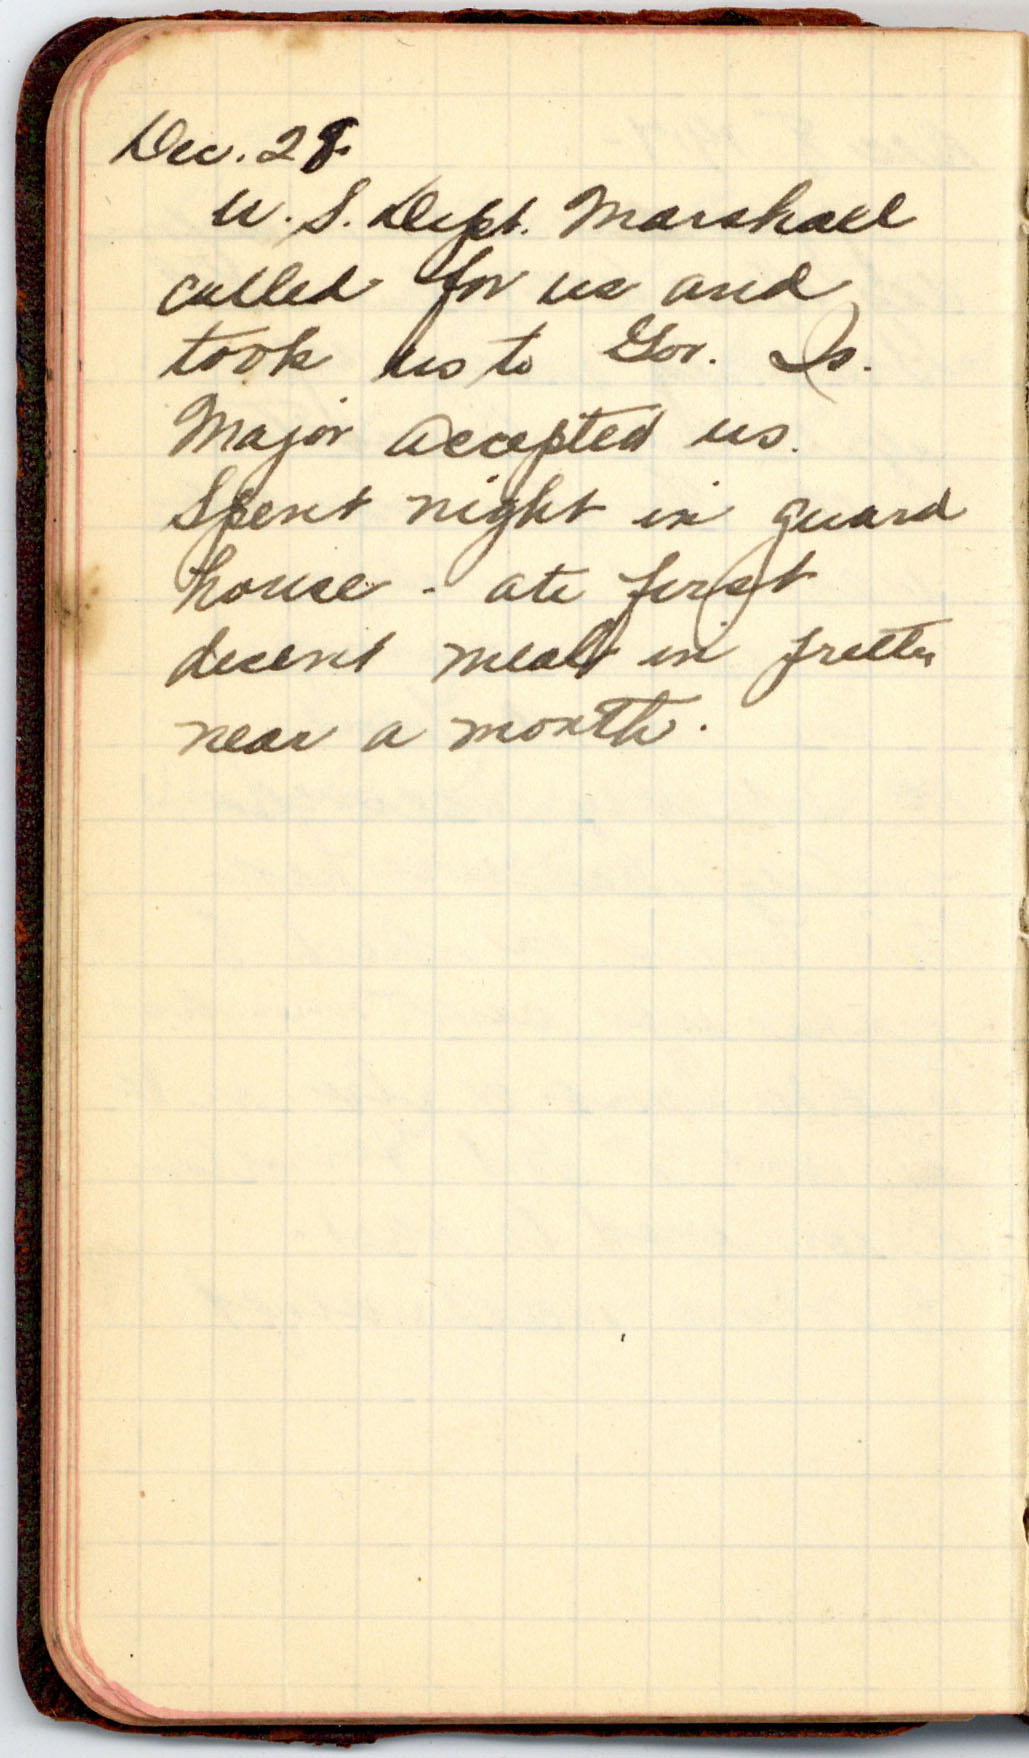 Dec. 28.
U. S. Dept. Marshall
called for us and
took us to Gov. Is.
Major accepted us.
Spent night in guard
house - ate first
decent meal in pretty
near a month.